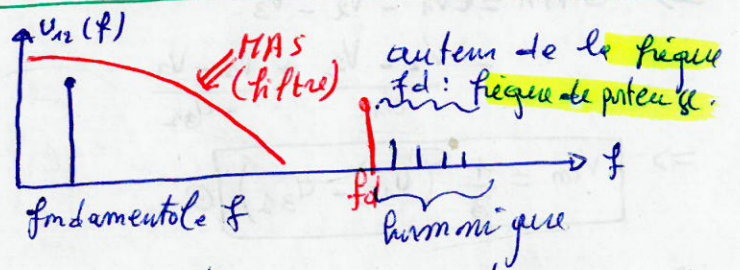 U₁₂(f)
MAS
(filtre)
autour de la fréque
fd : fréque de porteuse.
f
fd
fondamentale f
harmonique